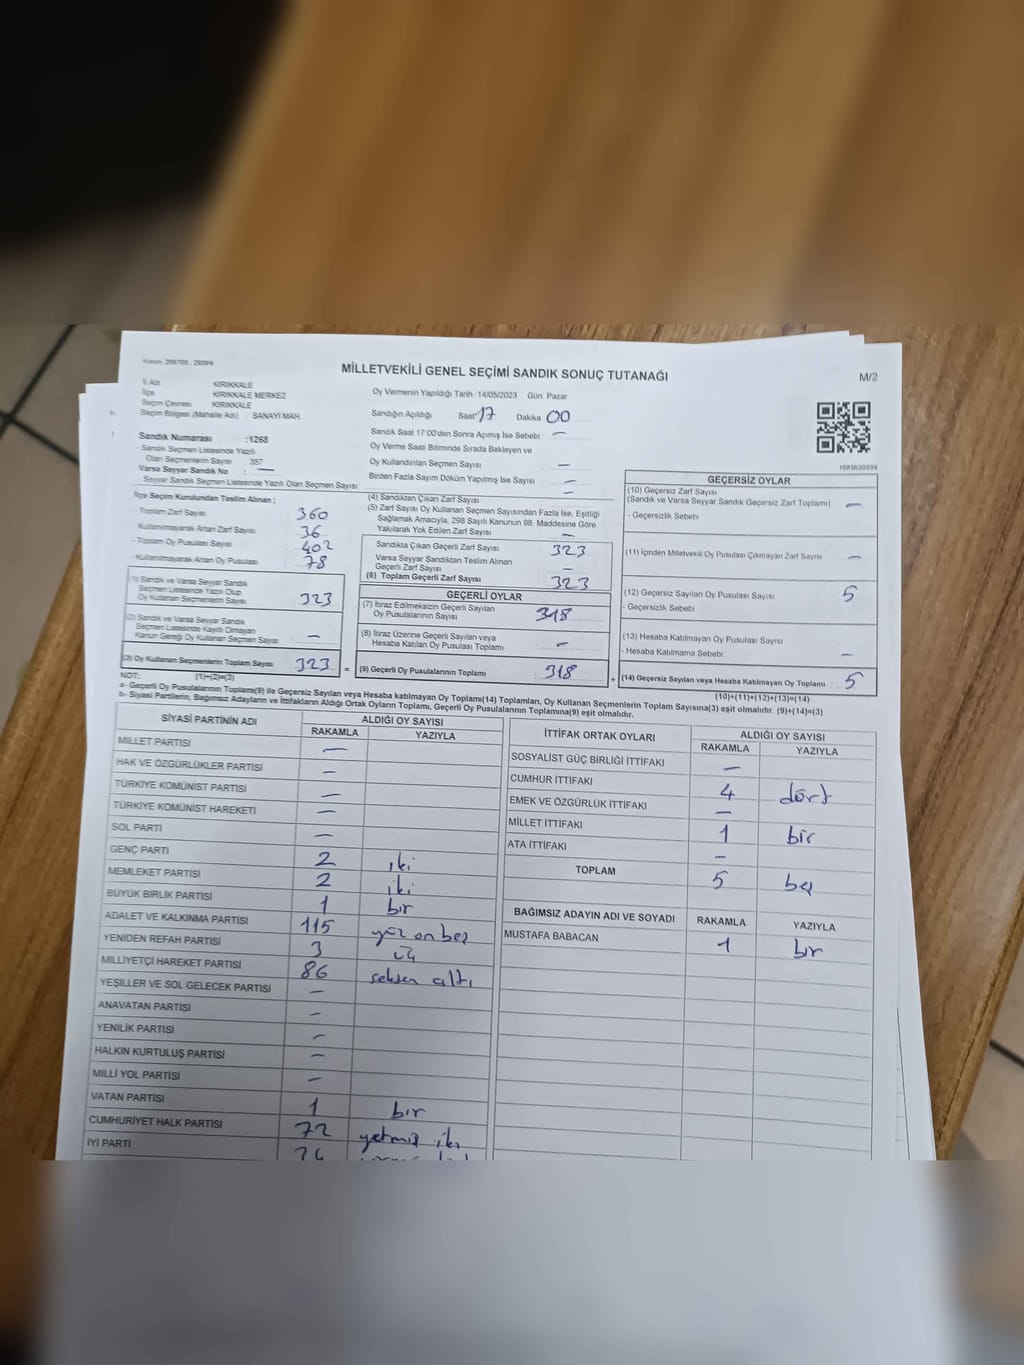 MİLLETVEKİLİ GENEL SEÇİMİ SANDIK SONUÇ TUTANAĞI
M/2
İl Adı KIRIKKALE
İlçe KIRIKKALE MERKEZ
Seçim Çevresi KIRIKKALE
Seçim Bölgesi (Mahalle Adı) SANAYİ MAH.
Sandık Numarası :1268
- Sandık Seçmen Listesinde Yazılı
Olan Seçmenlerin Sayısı 357
Varsa Seyyar Sandık No : —
- Seyyar Sandık Seçmen Listesinde Yazılı Olan Seçmen Sayısı:
Oy Vermenin Yapıldığı Tarih :14/05/2023 Gün Pazar
Sandığın Açıldığı Saat 17 Dakika 00
Sandık Saat 17:00'den Sonra Açımış İse Sebebi —
Oy Verme Saati Bitiminde Sırada Bekleyen ve
Oy Kullandırılan Seçmen Sayısı —
Birden Fazla Sayım Döküm Yapılmış İse Sayısı —
1083620939
İlçe Seçim Kurulundan Teslim Alınan ;
- Toplam Zarf Sayısı 360
- Kullanılmayarak Artan Zarf Sayısı 36
- Toplam Oy Pusulası Sayısı 402
- Kullanılmayarak Artan Oy Pusulası Sayısı 78
(1) Sandık ve Varsa Seyyar Sandık
Seçmen Listesinde Yazılı Olup
Oy Kullanan Seçmenlerin Sayısı 323
(2) Sandık ve Varsa Seyyar Sandık
Seçmen Listesinde Kayıtlı Olmayan
Kanun Gereği Oy Kullanan Seçmen Sayısı —
(3) Oy Kullanan Seçmenlerin Toplam Sayısı 323 =
(4) Sandıktan Çıkan Zarf Sayısı —
(5) Zarf Sayısı Oy Kullanan Seçmen Sayısından Fazla İse, Eşitliği
Sağlamak Amacıyla; 298 Sayılı Kanunun 98. Maddesine Göre
Yakılarak Yok Edilen Zarf Sayısı —
Sandıkta Çıkan Geçerli Zarf Sayısı 323
Varsa Seyyar Sandıktan Teslim Alınan
Geçerli Zarf Sayısı —
(6) Toplam Geçerli Zarf Sayısı 323
GEÇERLİ OYLAR
(7) İtiraz Edilmeksizin Geçerli Sayılan
Oy Pusulalarının Sayısı 318
(8) İtiraz Üzerine Geçerli Sayılan veya
Hesaba Katılan Oy Pusulası Toplamı —
(9) Geçerli Oy Pusulalarının Toplamı 318 +
GEÇERSİZ OYLAR
(10) Geçersiz Zarf Sayısı
(Sandık ve Varsa Seyyar Sandık Geçersiz Zarf Toplamı) —
- Geçersizlik Sebebi
(11) İçinden Milletvekili Oy Pusulası Çıkmayan Zarf Sayısı —
(12) Geçersiz Sayılan Oy Pusulası Sayısı 5
- Geçersizlik Sebebi
(13) Hesaba Katılmayan Oy Pusulası Sayısı
- Hesaba Katılmama Sebebi —
(14) Geçersiz Sayılan veya Hesaba Katılmayan Oy Toplamı 5
NOT: (1)+(2)=(3) (10)+(11)+(12)+(13)=(14)
a- Geçerli Oy Pusulalarının Toplamı(9) ile Geçersiz Sayılan veya Hesaba katılmayan Oy Toplamı(14) Toplamları, Oy Kullanan Seçmenlerin Toplam Sayısına(3) eşit olmalıdır. (9)+(14)=(3)
b- Siyasi Partilerin, Bağımsız Adayların ve İttifakların Aldığı Ortak Oyların Toplamı, Geçerli Oy Pusulalarının Toplamına(9) eşit olmalıdır.
SİYASİ PARTİNİN ADI ALDIĞI OY SAYISI
RAKAMLA YAZIYLA
MİLLET PARTİSİ —
HAK VE ÖZGÜRLÜKLER PARTİSİ —
TÜRKİYE KOMÜNİST PARTİSİ —
TÜRKİYE KOMÜNİST HAREKETİ —
SOL PARTİ —
GENÇ PARTİ 2 iki
MEMLEKET PARTİSİ 2 iki
BÜYÜK BİRLİK PARTİSİ 1 bir
ADALET VE KALKINMA PARTİSİ 115 yüz on beş
YENİDEN REFAH PARTİSİ 3 üç
MİLLİYETÇİ HAREKET PARTİSİ 86 seksen altı
YEŞİLLER VE SOL GELECEK PARTİSİ —
ANAVATAN PARTİSİ —
YENİLİK PARTİSİ —
HALKIN KURTULUŞ PARTİSİ —
MİLLİ YOL PARTİSİ —
VATAN PARTİSİ 1 bir
CUMHURİYET HALK PARTİSİ 72 yetmiş iki
İYİ PARTİ
İTTİFAK ORTAK OYLARI ALDIĞI OY SAYISI
RAKAMLA YAZIYLA
SOSYALİST GÜÇ BİRLİĞİ İTTİFAKI —
CUMHUR İTTİFAKI 4 dört
EMEK VE ÖZGÜRLÜK İTTİFAKI —
MİLLET İTTİFAKI 1 bir
ATA İTTİFAKI —
TOPLAM 5 beş
BAĞIMSIZ ADAYIN ADI VE SOYADI RAKAMLA YAZIYLA
MUSTAFA BABACAN 1 bir